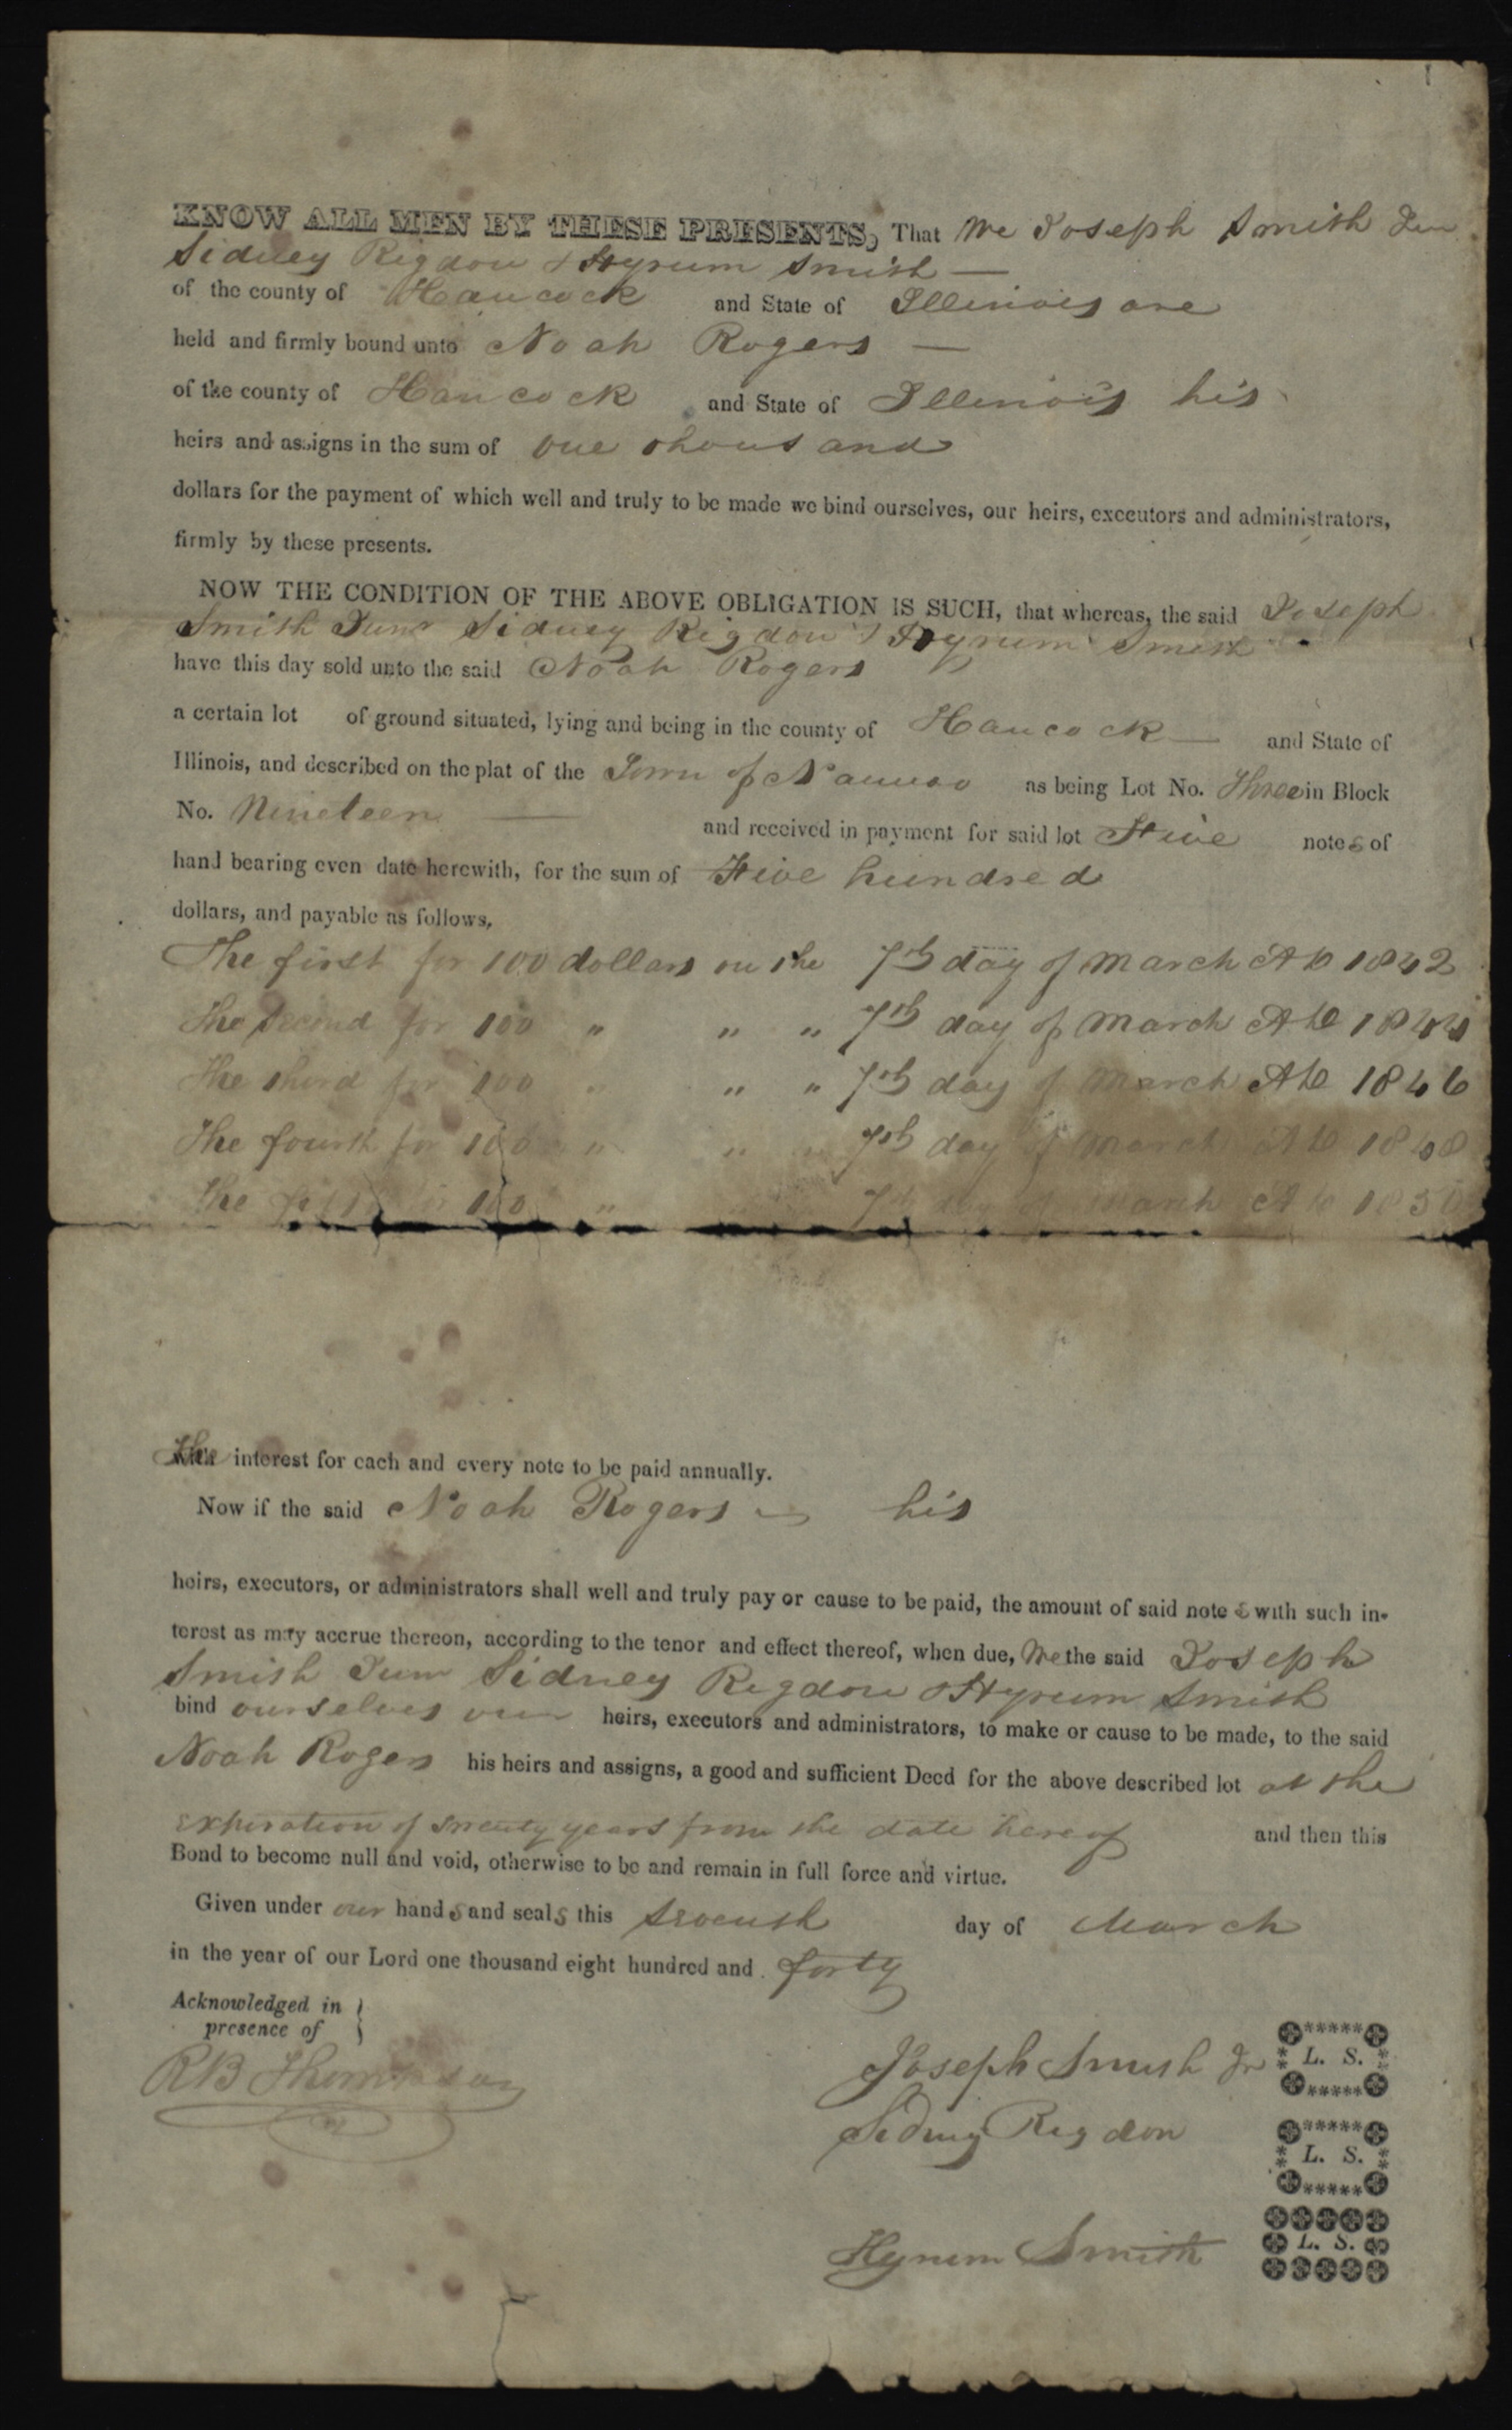 KNOW ALL MEN BY THESE PRESENTS, That We Joseph Smith Jun
Sidney Rigdon & Hyrum Smith —
of the county of Hancock and State of Illinois are
held and firmly bound unto Noah Rogers —
of the county of Hancock and State of Illinois his
heirs and assigns in the sum of one thousand
dollars for the payment of which well and truly to be made we bind ourselves, our heirs, executors and administrators,
firmly by these presents.
NOW THE CONDITION OF THE ABOVE OBLIGATION IS SUCH, that whereas, the said Joseph
Smith Junr Sidney Rigdon & Hyrum Smith
have this day sold unto the said Noah Rogers
a certain lot of ground situated, lying and being in the county of Hancock — and State of
Illinois, and described on the plat of the Town of Nauvoo as being Lot No. Three in Block
No. Nineteen — and received in payment for said lot Five notes of
hand bearing even date herewith, for the sum of Five hundred
dollars, and payable as follows,
The first for 100 dollars on the 7th day of March AD 1842
The second for 100 " " " 7th day of March AD 1844
The third for 100 " " " 7th day of March AD 1846
The fourth for 100 " " " 7th day of March AD 1848
The fifth for 100 " 7th day of March AD 1850
The interest for each and every note to be paid annually.
Now if the said Noah Rogers — his
heirs, executors, or administrators shall well and truly pay or cause to be paid, the amount of said notes with such in-
terest as may accrue thereon, according to the tenor and effect thereof, when due, We the said Joseph
Smith Junr Sidney Rigdon & Hyrum Smith
bind ourselves our heirs, executors and administrators, to make or cause to be made, to the said
Noah Rogers his heirs and assigns, a good and sufficient Deed for the above described lot at the
expiration of twenty years from the date hereof and then this
Bond to become null and void, otherwise to be and remain in full force and virtue.
Given under our hands and seals this day of March
in the year of our Lord one thousand eight hundred and forty
Acknowledged in }
presence of }
RB Thompson
Joseph Smith Jr L. S.
Sidney Rigdon L. S.
Hyrum Smith L. S.